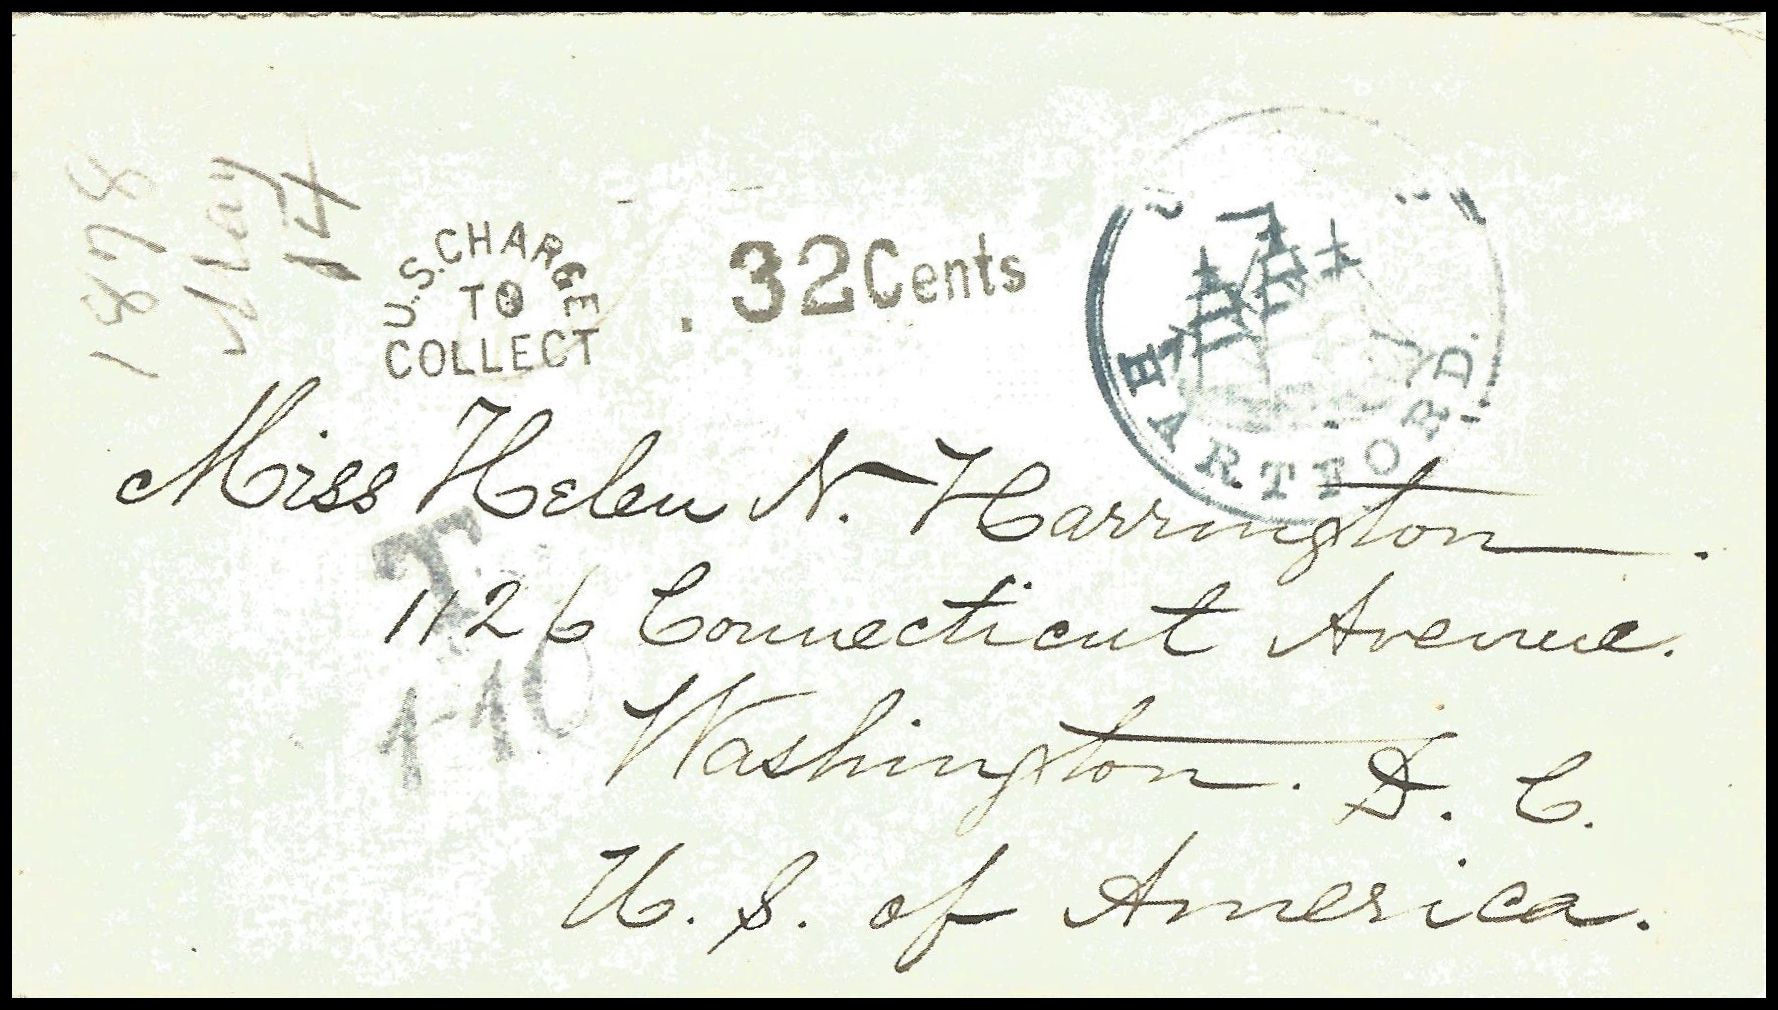 1878
May
14
U.S. CHARGE
TO
COLLECT
. 32 Cents
HARTFORD.
Miss Helen N. Harrington.
T.
1126 Connecticut Avenue.
1-10
Washington. D. C.
U. S. of America.